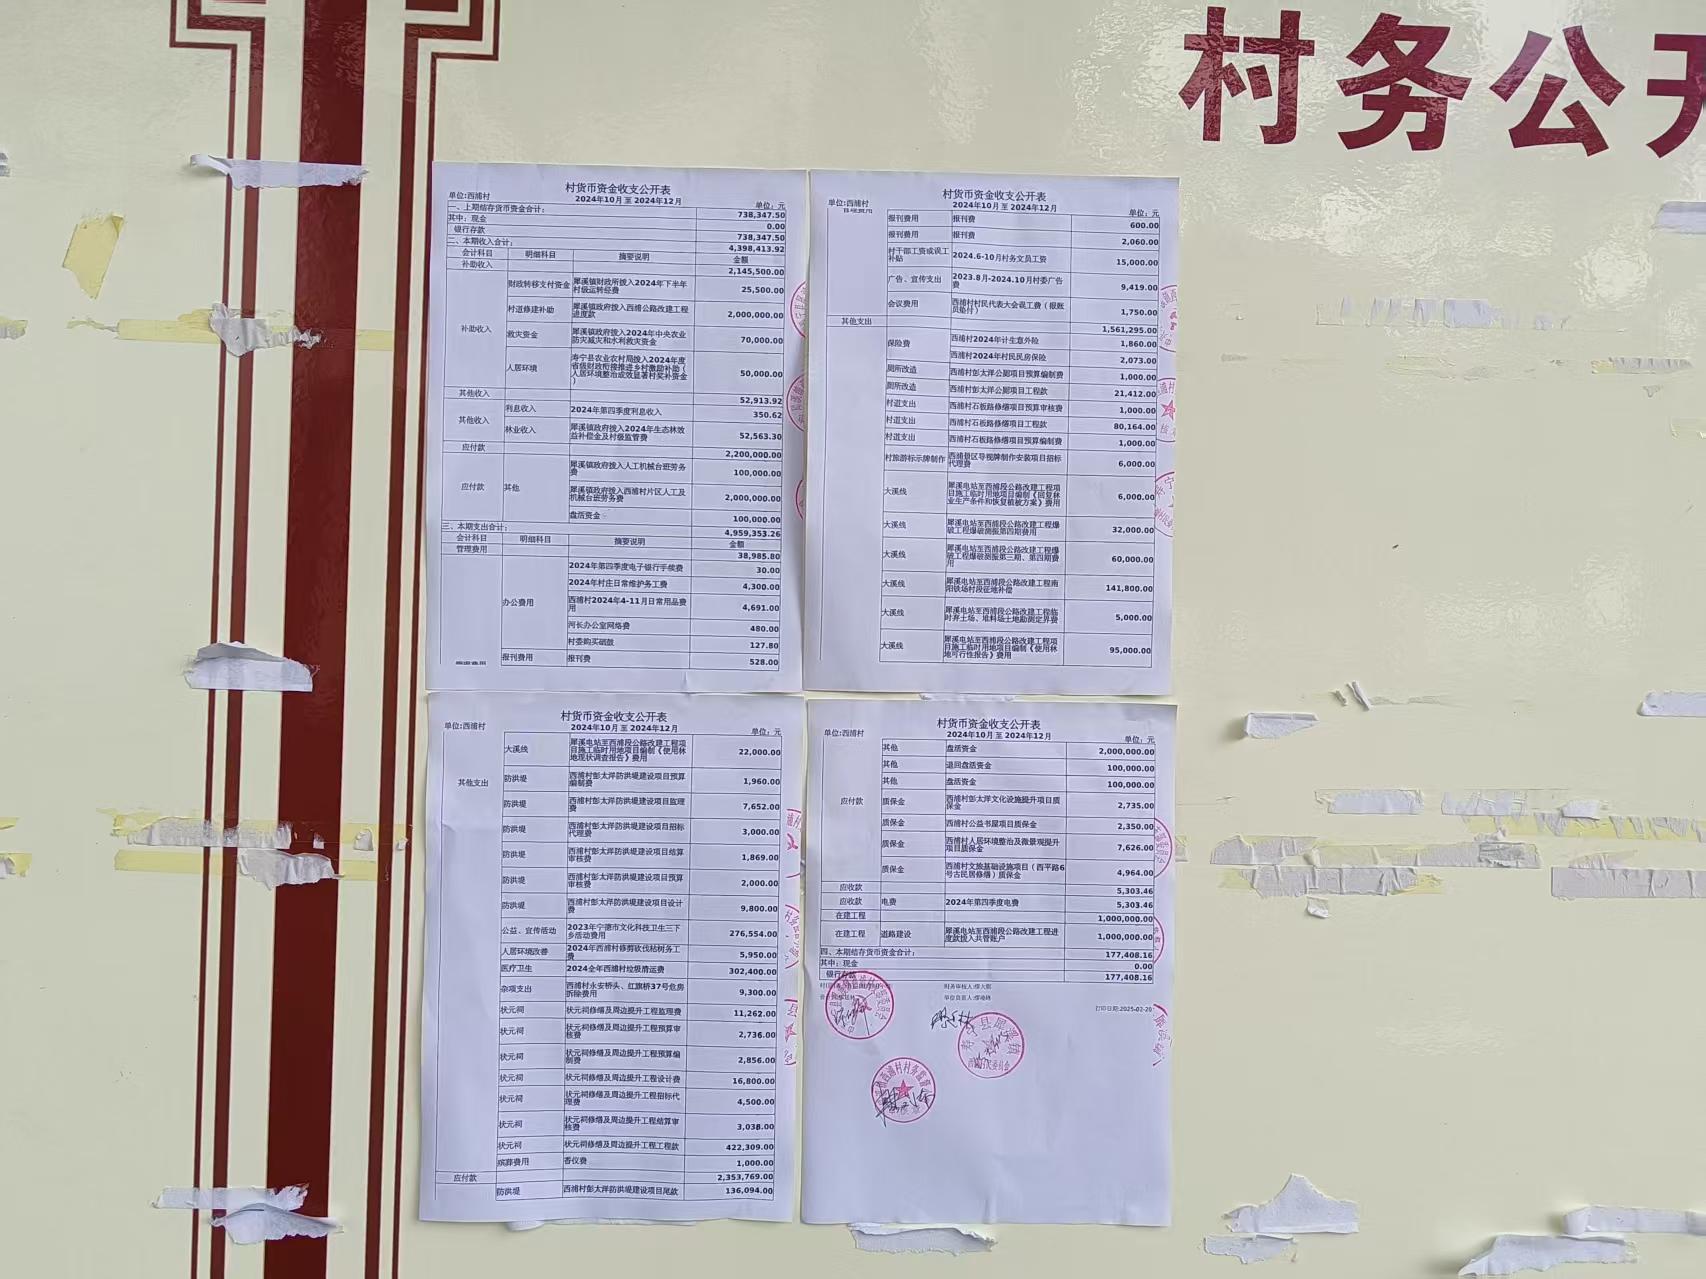 村务公开
村货币资金收支公开表
单位:西浦村
2024年10月 至 2024年12月
单位：元
一、上期结存货币资金合计： 738,347.50
其中：现金 0.00
银行存款 738,347.50
二、本期收入合计： 4,398,413.92
会计科目 明细科目 摘要说明 金额
补助收入 2,145,500.00
补助收入
财政转移支付资金 犀溪镇财政所拨入2024年下半年村级运转经费 25,500.00
村道修建补助 犀溪镇政府拨入西浦公路改建工程进度款 2,000,000.00
救灾资金 犀溪镇政府拨入2024年中央农业防灾减灾和水利救灾资金 70,000.00
人居环境 寿宁县农业农村局拨入2024年度省级财政衔接推进乡村激励补助（人居环境整治成效显著村奖补资金） 50,000.00
其他收入 52,913.92
其他收入
利息收入 2024年第四季度利息收入 350.62
林业收入 犀溪镇政府拨入2024年生态林效益补偿金及村级监管费 52,563.30
应付款 2,200,000.00
应付款 其他
犀溪镇政府拨入人工机械台班劳务费 100,000.00
犀溪镇政府拨入西浦村片区人工及机械台班劳务费 2,000,000.00
盘活资金 100,000.00
三、本期支出合计： 4,959,353.26
会计科目 明细科目 摘要说明 金额
管理费用 38,985.80
办公费用
2024年第四季度电子银行手续费 30.00
2024年村庄日常维护务工费 4,300.00
西浦村2024年4-11月日常用品费用 4,691.00
河长办公室网络费 480.00
村委购买硒鼓 127.80
报刊费用 报刊费 528.00
村货币资金收支公开表
单位:西浦村
2024年10月 至 2024年12月
单位：元
管理费用
报刊费用 报刊费 600.00
报刊费用 报刊费 2,060.00
村干部工资或误工补贴 2024.6-10月村务文员工资 15,000.00
广告、宣传支出 2023.8月-2024.10月村委广告费 9,419.00
会议费用 西浦村村民代表大会误工费（报账员垫付） 1,750.00
其他支出 1,561,295.00
保险费 西浦村2024年计生意外险 1,860.00
西浦村2024年村民民房保险 2,073.00
厕所改造 西浦村彭太洋公厕项目预算编制费 1,000.00
厕所改造 西浦村彭太洋公厕项目工程款 21,412.00
村道支出 西浦村石板路修缮项目预算审核费 1,000.00
村道支出 西浦村石板路修缮项目工程款 80,164.00
村道支出 西浦村石板路修缮项目预算编制费 1,000.00
村旅游标示牌制作 西浦景区导视牌制作安装项目招标代理费 6,000.00
大溪线 犀溪电站至西浦段公路改建工程项目施工临时用地项目编制《回复林业生产条件和恢复植被方案》费用 6,000.00
大溪线 犀溪电站至西浦段公路改建工程爆破工程爆破测振第四期费用 32,000.00
大溪线 犀溪电站至西浦段公路改建工程爆破工程爆破测振第三期、第四期费用 60,000.00
大溪线 犀溪电站至西浦段公路改建工程南阳铁场村段征地补偿 141,800.00
大溪线 犀溪电站至西浦段公路改建工程临时弃土场、堆料场土地勘测定界费 5,000.00
大溪线 犀溪电站至西浦段公路改建工程项目施工临时用地项目编制《使用林地可行性报告》费用 95,000.00
村货币资金收支公开表
单位:西浦村
2024年10月 至 2024年12月
单位：元
其他支出
大溪线 犀溪电站至西浦段公路改建工程项目施工临时用地项目编制《使用林地现状调查报告》费用 22,000.00
防洪堤 西浦村彭太洋防洪堤建设项目预算编制费 1,960.00
防洪堤 西浦村彭太洋防洪堤建设项目监理费 7,652.00
防洪堤 西浦村彭太洋防洪堤建设项目招标代理费 3,000.00
防洪堤 西浦村彭太洋防洪堤建设项目结算审核费 1,869.00
防洪堤 西浦村彭太洋防洪堤建设项目预算审核费 2,000.00
防洪堤 西浦村彭太洋防洪堤建设项目设计费 9,800.00
公益、宣传活动 2023年宁德市文化科技卫生三下乡活动费用 276,554.00
人居环境改善 2024年西浦村修剪砍伐枯树务工费 5,950.00
医疗卫生 2024全年西浦村垃圾清运费 302,400.00
杂项支出 西浦村永安桥头、红旗桥37号危房拆除费用 9,300.00
状元祠 状元祠修缮及周边提升工程监理费 11,262.00
状元祠 状元祠修缮及周边提升工程预算审核费 2,736.00
状元祠 状元祠修缮及周边提升工程预算编制费 2,856.00
状元祠 状元祠修缮及周边提升工程设计费 16,800.00
状元祠 状元祠修缮及周边提升工程招标代理费 4,500.00
状元祠 状元祠修缮及周边提升工程结算审核费 3,038.00
状元祠 状元祠修缮及周边提升工程工程款 422,309.00
殡葬费用 香仪费 1,000.00
应付款 2,353,769.00
防洪堤 西浦村彭太洋防洪堤建设项目尾款 136,094.00
村货币资金收支公开表
单位:西浦村
2024年10月 至 2024年12月
单位：元
应付款
其他 盘活资金 2,000,000.00
其他 退回盘活资金 100,000.00
其他 盘活资金 100,000.00
质保金 西浦村彭太洋文化设施提升项目质保金 2,735.00
质保金 西浦村公益书屋项目质保金 2,350.00
质保金 西浦村人居环境整治及微景观提升项目质保金 7,626.00
质保金 西浦村文旅基础设施项目（西平路6号古民居修缮）质保金 4,964.00
应收款 5,303.46
应收款 电费 2024年第四季度电费 5,303.46
在建工程 1,000,000.00
在建工程 道路建设 犀溪电站至西浦段公路改建工程进度款拨入共管账户 1,000,000.00
四、本期结存货币资金合计： 177,408.16
其中：现金 0.00
银行存款 177,408.16
财务审核人:
单位负责人:
打印日期:2025-02-20